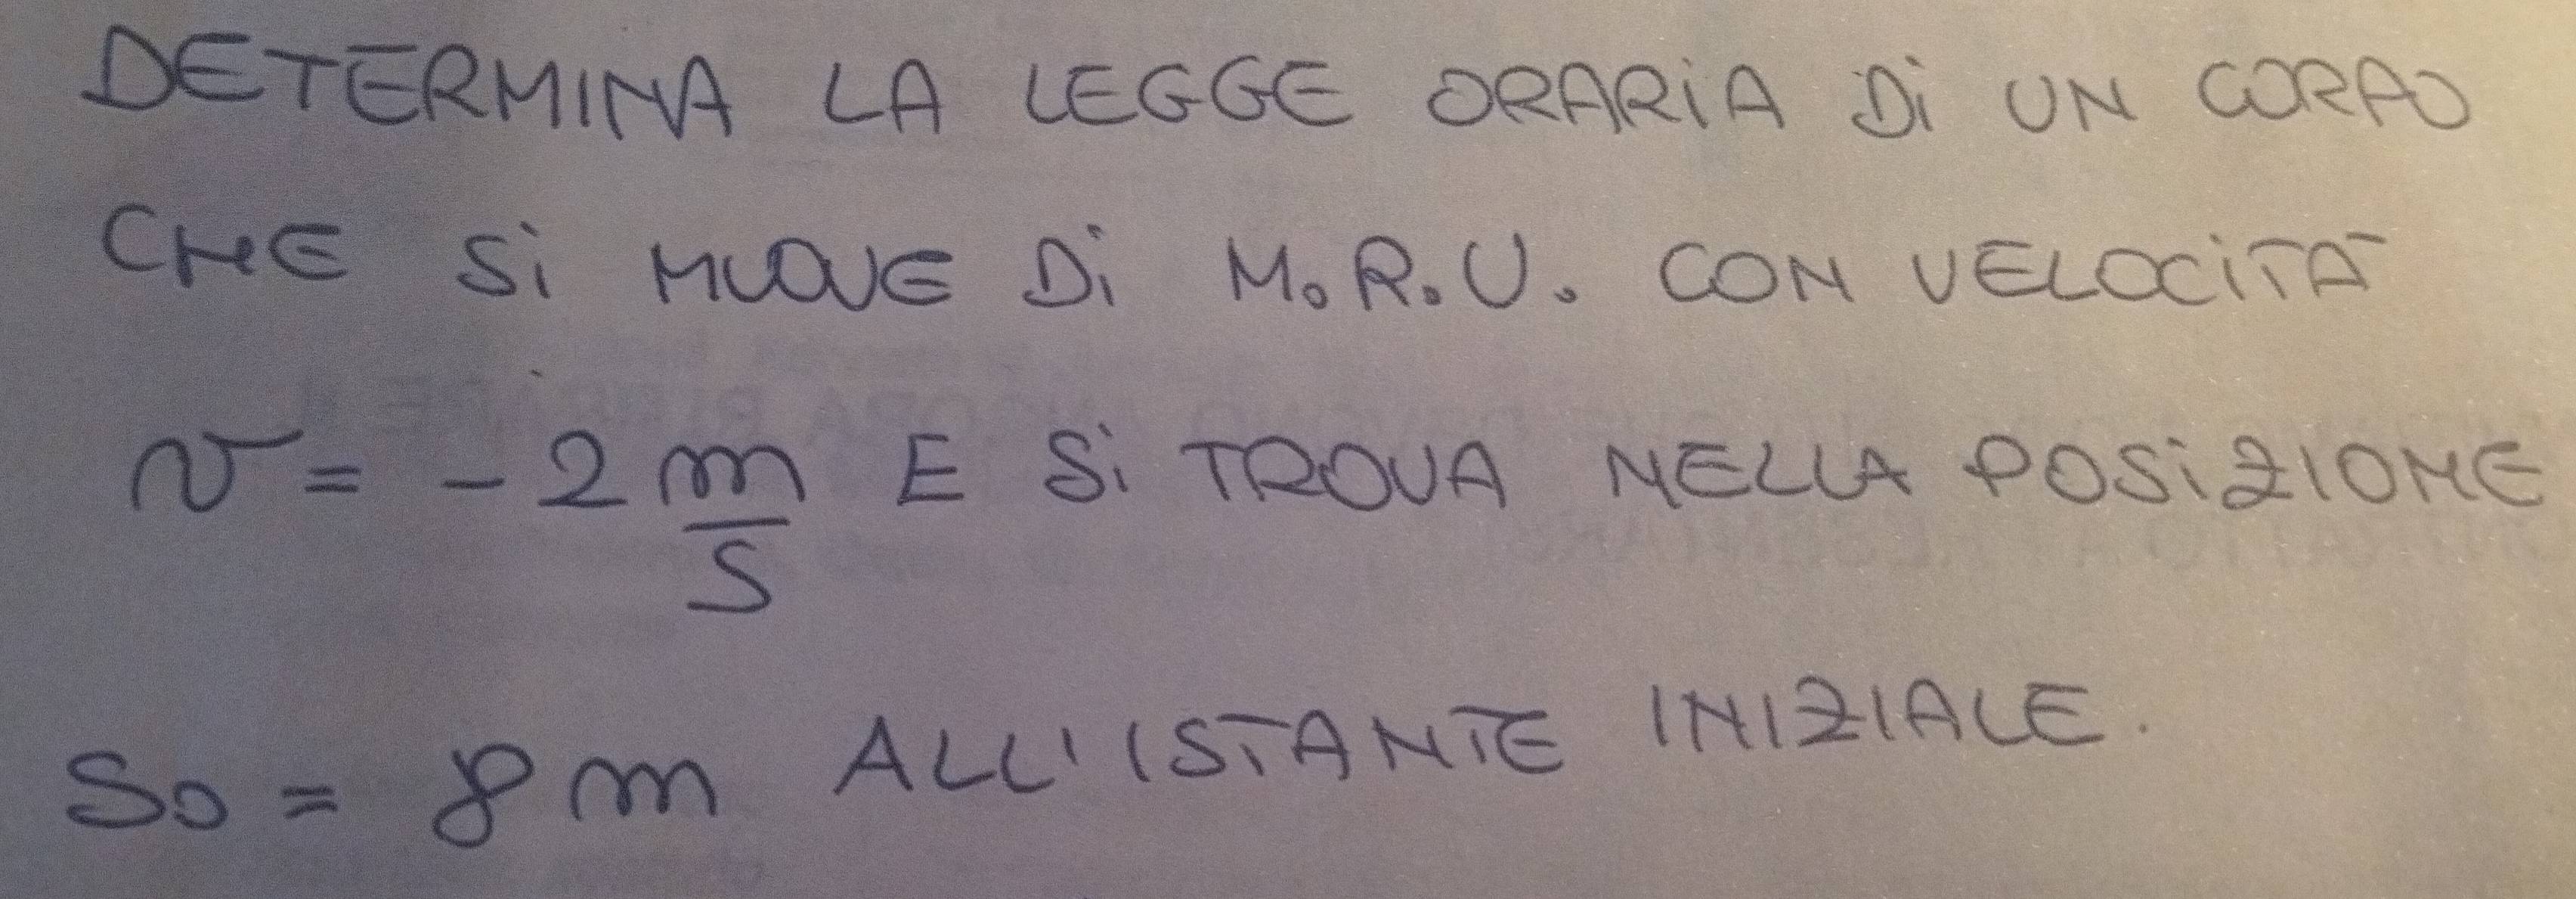 DETERMINA LA LEGGE ORARIA DI UN CORPO
CHE SI MUOVE DI M.R.U. CON VELOCITÀ
v = -2 m/s E SI TROVA NELLA POSIZIONE
S0 = 8 m ALL'ISTANTE INIZIALE.